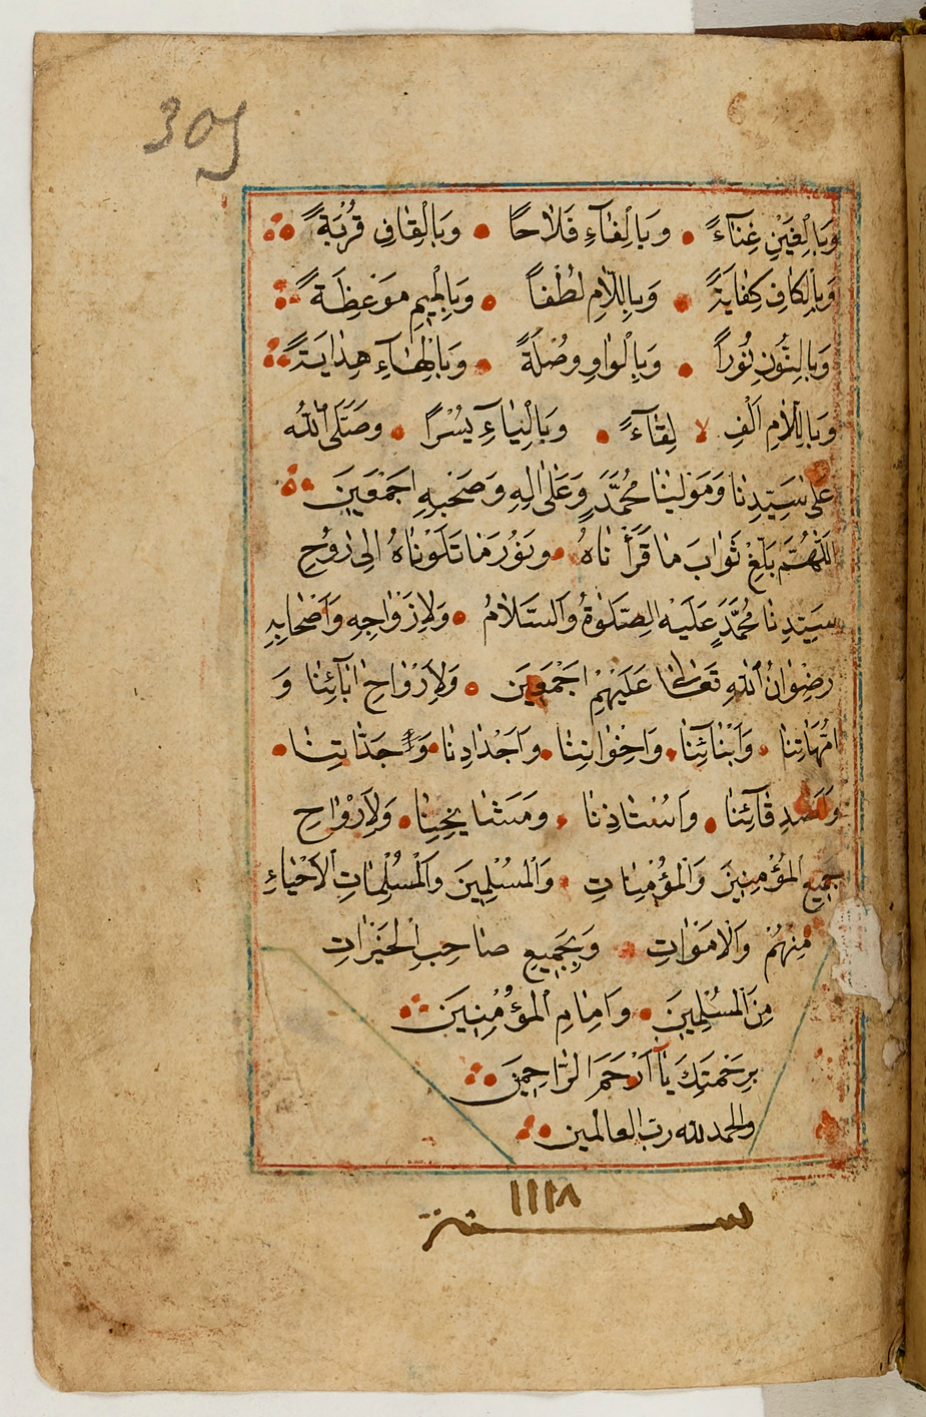 305
وَبِالْغَيْنِ غِنَآءً وَبِالْفَآءِ فَلَاحًا وَبِالْقَافِ قُرْبَةً
وَبِالْكَافِ كِفَايَةً وَبِاللَّامِ لُطْفاً وَبِالْمِيمِ مَوْعِظَةً
وَبِالنُّونِ نُوراً وَبِالْوَاوِ وُصْلَةً وَبِالْهَآءِ هِدَايَةً
وَبِاللَّامِ اَلْفِ لا لِقَآءً وَبِالْيَآءِ يُسْرًا وَصَلَّى اللّٰهُ
عَلٰى سَيِّدِنَا وَمَوْلٰينَا مُحَمَّدٍ وَعَلٰى اٰلِهِ وَصَحْبِهِ اَجْمَعِينَ
اَللّٰهُمَّ بَلِّغْ ثَوَابَ مَا قَرَأْنَاهُ وَنُورَ مَا تَلَوْنَاهُ اِلٰى رُوْحِ
سَيِّدِنَا مُحَمَّدٍ عَلَيْهِ الصَّلٰوةُ وَالسَّلَامُ وَلِاَزْوَاجِهِ وَاَصْحَابِهِ
رِضْوَانُ اللّٰهِ تَعَالٰى عَلَيْهِمْ اَجْمَعِينَ وَلِاَرْوَاحِ اٰبَآئِنَا وَ
اُمَّهَاتِنَا وَاَبْنَآئِنَا وَاِخْوَانِنَا وَاَجْدَادِنَا وَجَدَّاتِنَا
وَاَصْدِقَآئِنَا وَاُسْتَاذِنَا وَمَشَايِخِنَا وَلِاَرْوَاحِ
جَمِيعِ الْمُؤْمِنِينَ وَالْمُؤْمِنَاتِ وَالْمُسْلِمِينَ وَالْمُسْلِمَاتِ الْاَحْيَاءِ
مِنْهُمْ وَالْاَمْوَاتِ وَبِجَمِيعِ صَاحِبِ الْخَيْرَاتِ
مِنَ الْمُسْلِمِينَ وَاِمَامِ الْمُؤْمِنِينَ
بِرَحْمَتِكَ يَآ اَرْحَمَ الرَّاحِمِينَ
والحمد لله رب العالمين
سنة ١١١٨